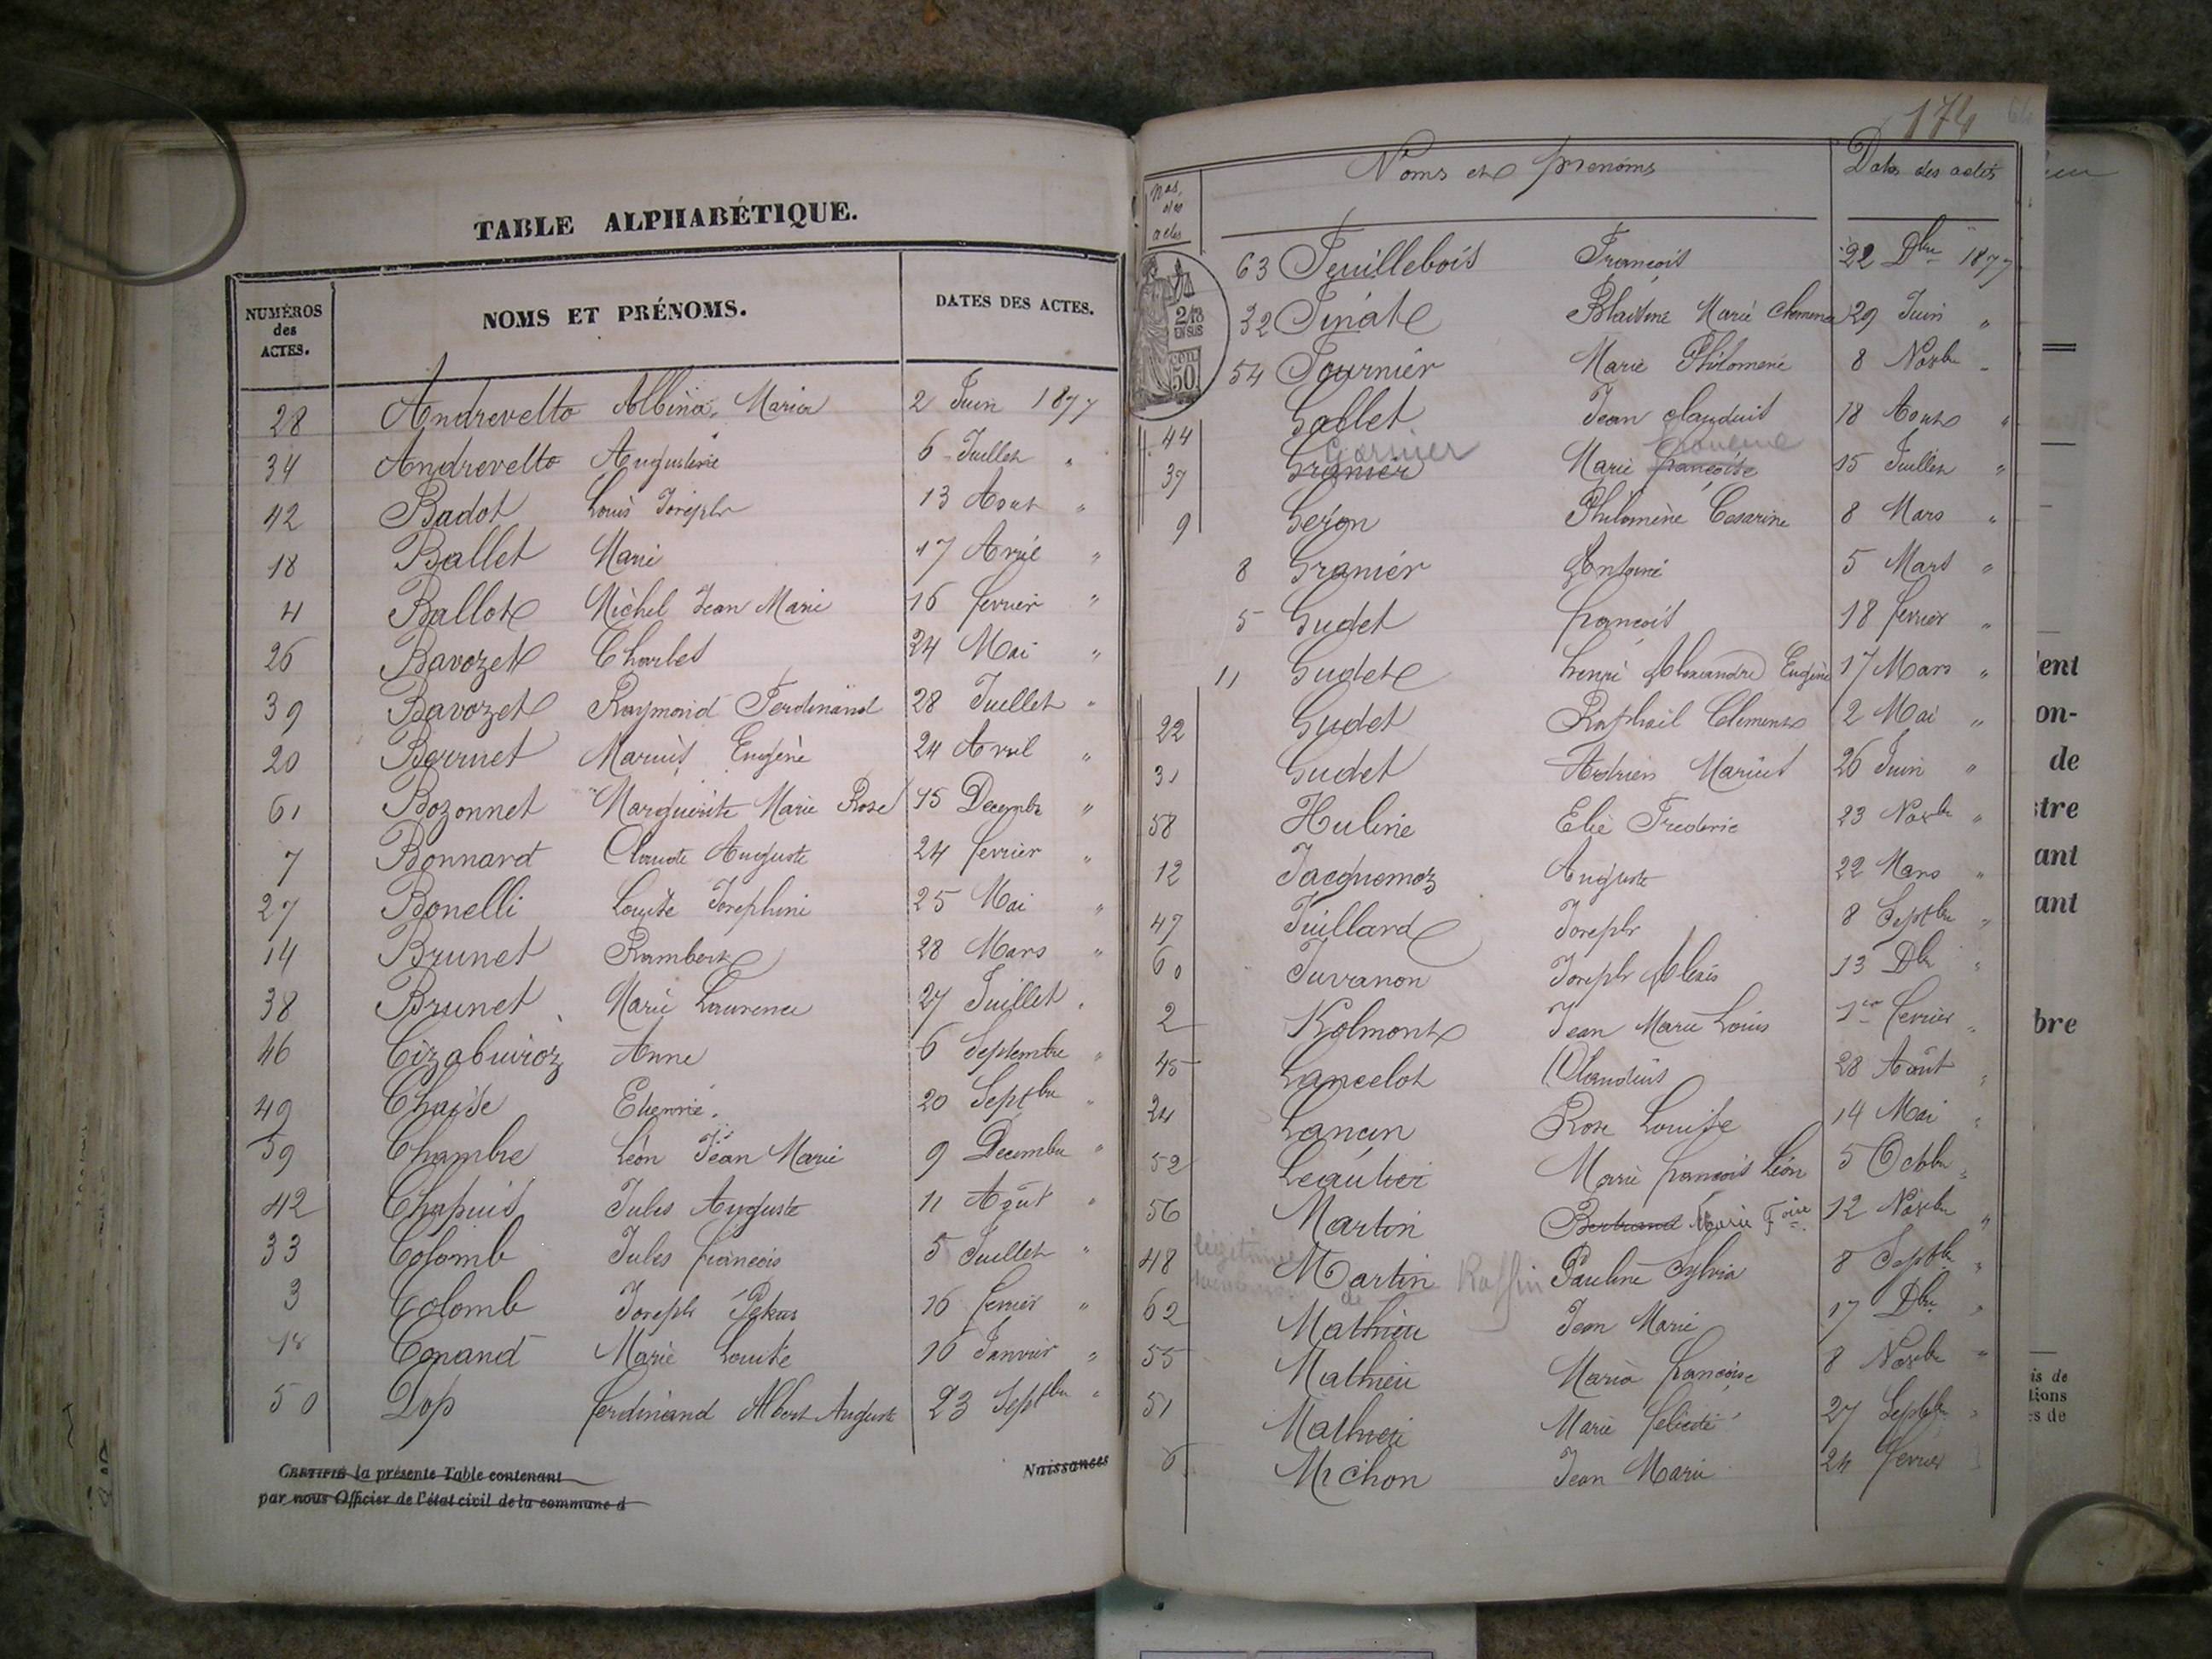 TABLE ALPHABÉTIQUE.
NUMÉROS des ACTES. NOMS ET PRÉNOMS. DATES DES ACTES.
28 Andrevetto Albina, Maria 2 Juin 1877
34 Andrevetto Augusterie 6 Juillet "
42 Badot Louis Joseph 13 Aout "
18 Ballet Marie 17 Avril "
4 Ballot Michel Jean Marie 16 fevrier "
26 Bavozet Charles 24 Mai "
39 Bavozet Raymond Ferdinand 28 Juillet "
20 Bernet Marius Eugène 24 Avril "
61 Bozonnet Marguerite Marie Rose 15 Decembre "
7 Bonnard Claude Auguste 24 fevrier "
27 Bonelli Louise Josephine 25 Mai "
14 Brunet Rambert 28 Mars "
38 Brunet Marie Laurence 27 Juillet "
46 Cizabuiroz Anne 6 Septembre "
49 Chaise Etienne. 20 Septbre "
59 Chambre Léon Jean Marie 9 Decembre "
42 Chapuis Jules Auguste 11 Août "
33 Colomb Jules francois 5 Juillet "
3 Colomb Joseph 16 fevrier "
Conand Marie Louise 16 Janvier "
50 Dop ferdinand Albert Auguste 23 Septbre "
CERTIFIÉ la présente Table contenant Naissances
par nous Officier de l'état civil de la commune d
174
Nos des actes Noms et prenoms Dates des actes
2/10 EN SUS
50
63 Feuillebois François 22 Dbre 1877
32 Finat Blaisine Marie Clemence 29 Juin "
54 Fournier Marie Philomene 8 Novbre "
44 Gallet Jean Claudius 18 Aout "
Garnier
37 Granier Marie françoise 15 Juillet "
9 Geron Philomène Cesarine 8 Mars "
8 Granier Antoine 5 Mars "
5 Gudet francois 18 fevrier "
11 Gudet henri Alexandre Eugène 17 Mars "
22 Gudet Raphail Clement 2 Mai "
31 Gudet Adrien Marius 26 Juin "
58 Huline Elie Frederic 23 Novbre "
12 Jacquemoz Auguste 22 Mars "
47 Juillard Joseph 8 Septbre "
60 Juvanon Joseph Alexis 13 Dbre "
2 Kolmont Jean Marie Louis 1er fevrier "
45 Lancelot Claudius 28 Août "
24 Lancin Rose Louise 14 Mai "
52 Leautier Marie francois Léon 5 Octbre "
56 Martin Bertrand Marie Foise 12 Novbre "
48 Martin Raffin Pauline Sylvia 8 Septbre "
62 Mathieu Jean Marie 17 Dbre "
55 Mathieu Maria francoise 8 Novbre "
51 Mathieu Marie felicité 27 Septbre "
6 Michon Jean Marie 24 fevrier
ent
on-
de
stre
ant
ant
bre
is de
tions
s de